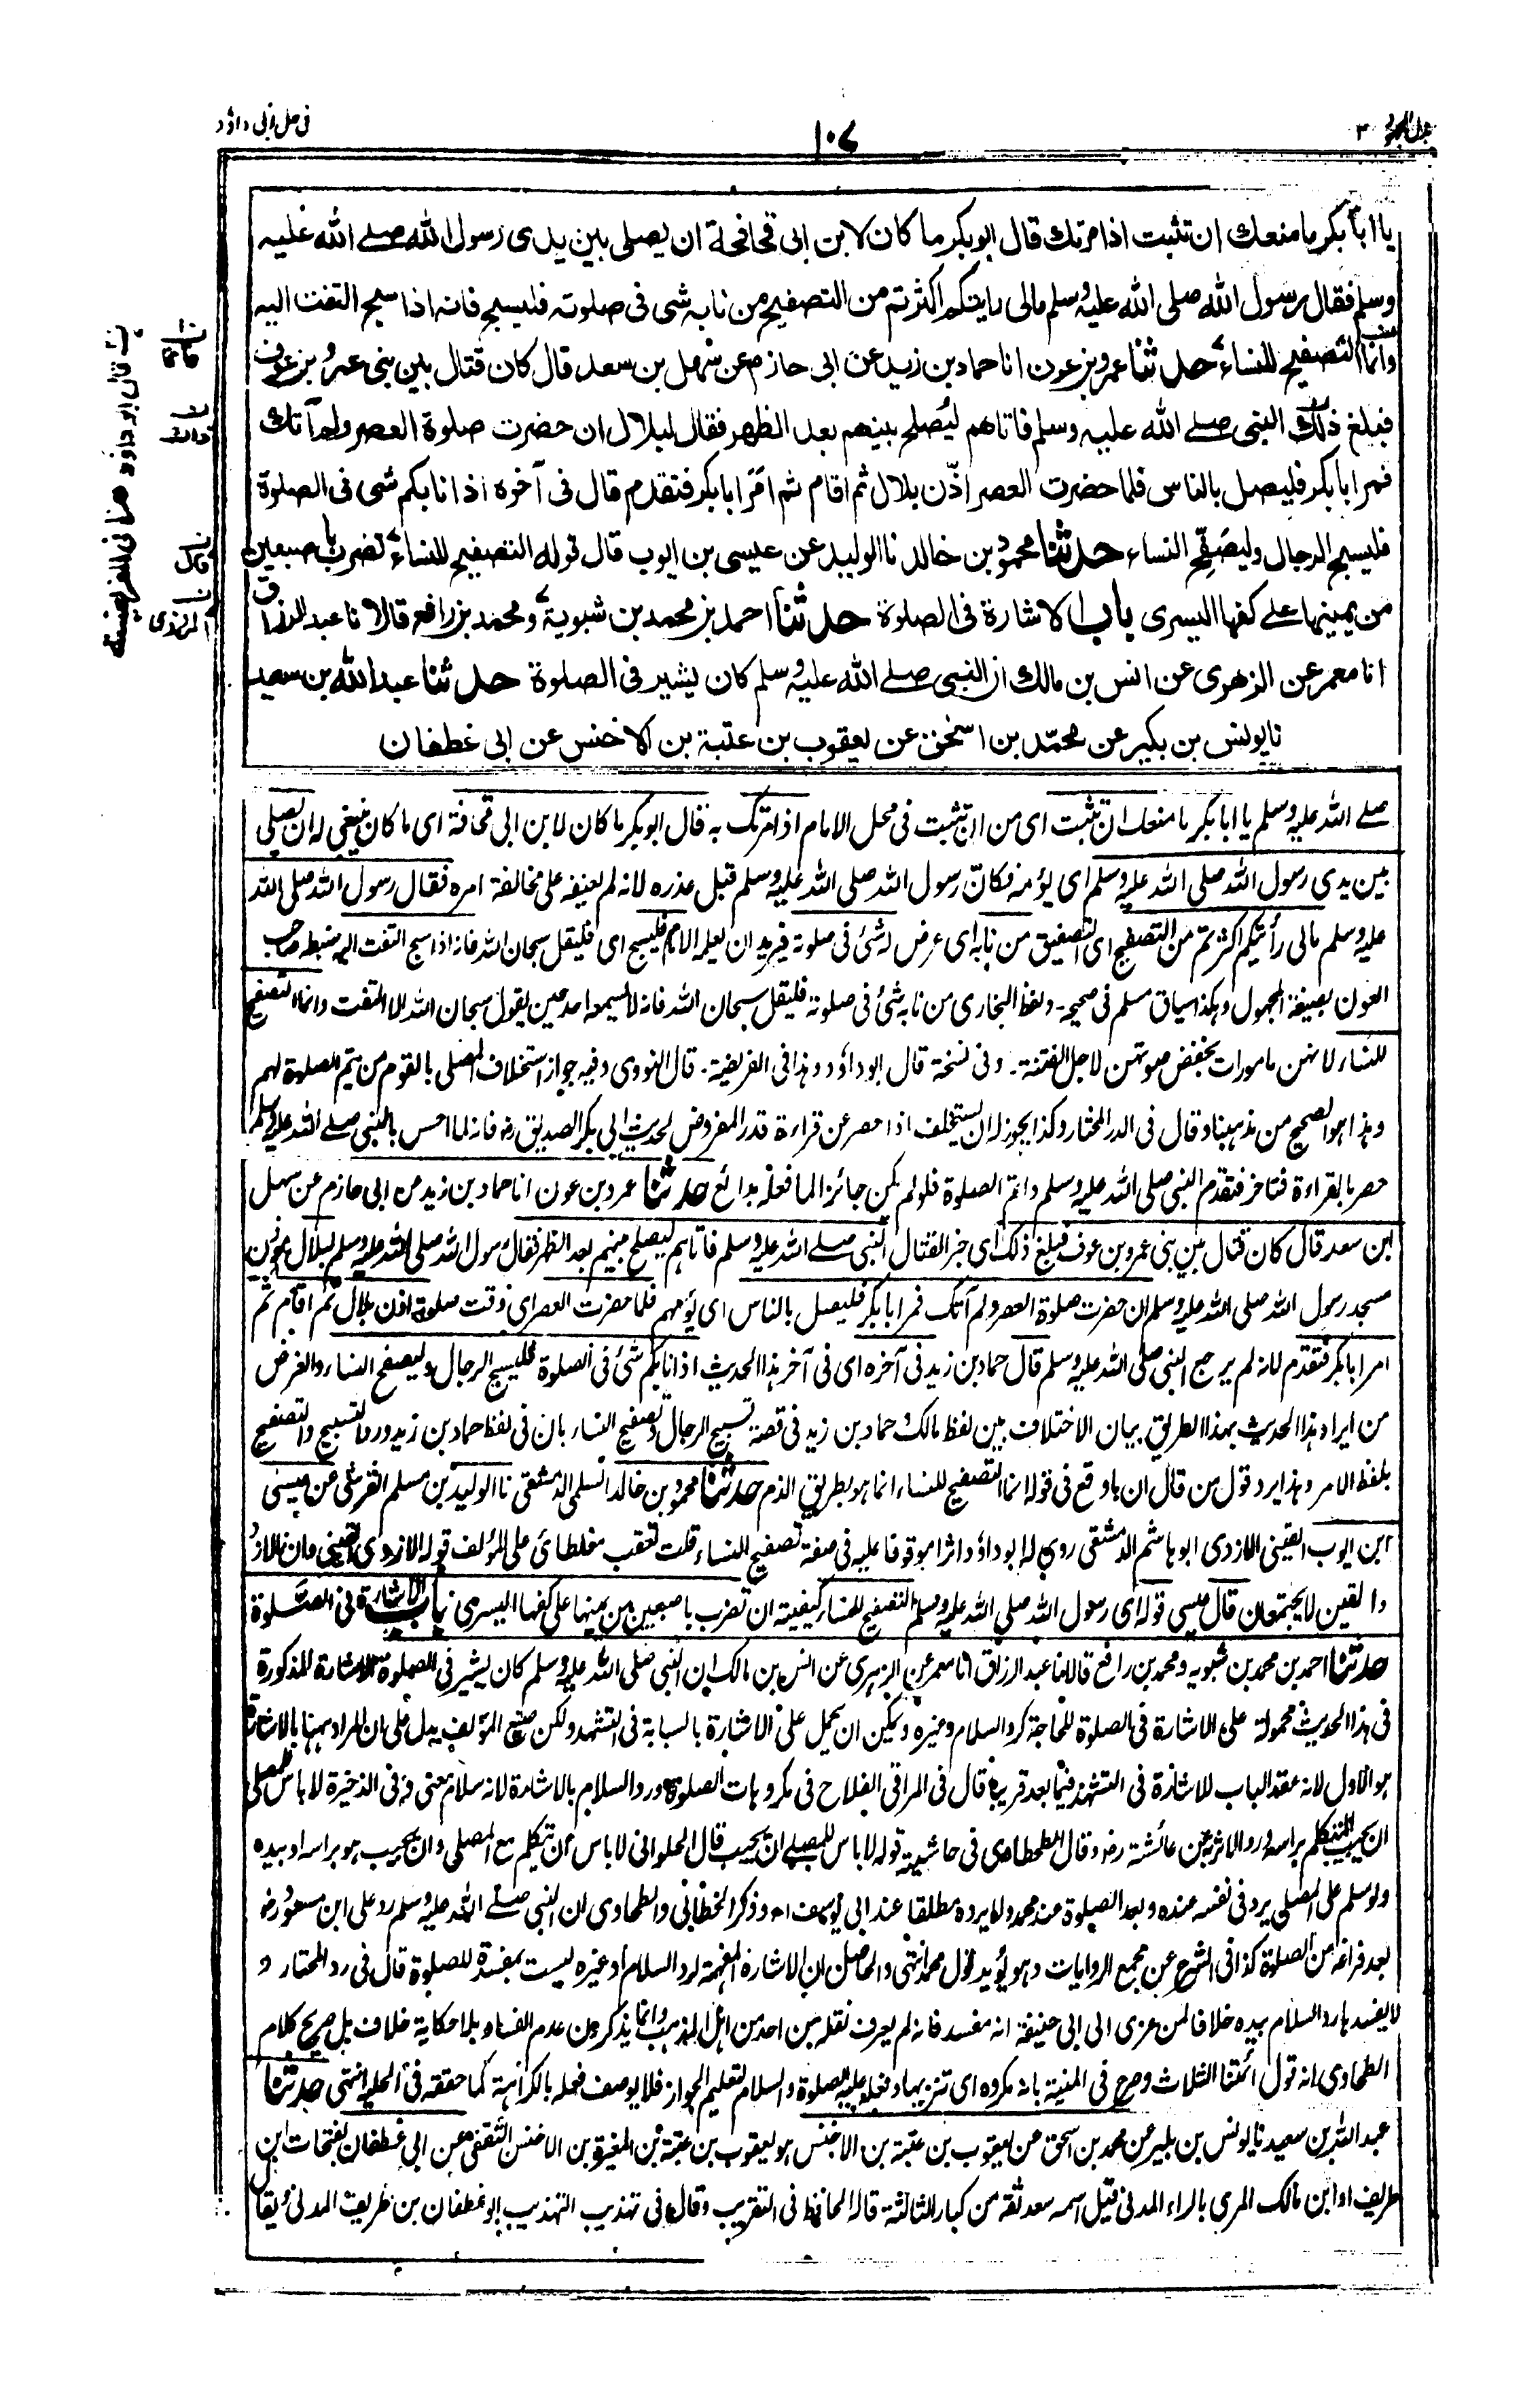 بذل المجهود ٣
١٠٧
فى حل ابى داؤد
يا ابا بكر ما منعك ان تثبت اذ امرتك قال ابو بكر ما كان لابن ابى قحافحة ان يصلى بين يدى رسول الله صلے الله عليه
وسلم فقال رسول الله صلى الله عليه وسلم مالى رايتكم اكثرتم من التصفيح من نابه شى فى صلوته فليسبح فانه اذا سبح التفت اليه
وانما التصفيح للنساء حدثنا عمرو بن عون انا حماد بن زيد عن ابى حازم عن سهل بن سعد قال كان قتال بين بنى عمرو بن عوف
فبلغ ذلك النبى صلے الله عليه وسلم فاتاهم ليُصلح بينهم بعد الظهر فقال لبلال ان حضرت صلوة العصر ولم آتك
فمر ابا بكر فليصل بالناس فلما حضرت العصر اذّن بلال ثم اقام ثم امَرَ ابا بكر فتقدم قال فى آخره اذا نابكم شى فى الصلوة
فليسبح الرجال وليصَفِّح النساء حدثنا محمود بن خالد نا الوليد عن عيسى بن ايوب قال قوله التصفيح للنساء تضرب باصبعين
من يمينها على كفها اليسرى باب الاشارة فى الصلوة حدثنا احمد بن محمد بن شبوية ومحمد بن رافع قالا نا عبد الرزاق
انا معمر عن الزهرى عن انس بن مالك ان النبى صلے الله عليه وسلم كان يشير فى الصلوة حدثنا عبد الله بن سعيد
نا يونس بن بكير عن محمّد بن اسحٰق عن يعقوب بن عتبة بن الاخنس عن ابى غطفان
قال ابو داؤد هذا فى الفريضة
صلے الله عليه وسلم يا ابا بكر ما منعك ان تثبت اى من ان تثبت فى محل الامام اذ امرتك به قال ابو بكر ما كان لابن ابى قحافة اى ما كان ينبغى له ان يصلى
بين يدى رسول الله صلى الله عليه وسلم اى يؤمه فكانّ رسول الله صلى الله عليه وسلم قبل عذره لانه لم يعنفه على مخالفة امره فقال رسول الله صلى الله
عليه وسلم مالى رأيتكم اكثرتم من التصفيح اى التصفيق من نابه اى عرض له شئ فى صلوته فيريد ان يعلمه الامام فليسبح اى فليقل سبحان الله فانه اذا سبح التفت اليه ضبطه صاحب
العون بصيغة المجهول وهكذا سياق مسلم فى صحيحه ـ ولفظ البخارى من نابه شئ فى صلوته فليقل سبحان الله فانه لا يسمعه احد حين يقول سبحان الله الا التفت وانما التصفيح
للنساء لانهن مامورات بخفض صوتهن لاجل الفتنة ـ وفى نسخة قال ابو داؤد وهذا فى الفريضة ـ قال النووى وفيه جواز استخلاف المصلى بالقوم من يتم الصلوة لهم
وهذا هو الصحيح من مذهبنا وقال فى الدر المختار وكذا يجوز له ان يستخلف اذا حصر عن قراءة قدر المفروض لحديث ابى بكر الصديق رضـ فانه لما احس بالنبى صلے الله عليه وسلم
حصر بالقراءة فتاخر فتقدم النبى صلى الله عليه وسلم واتم الصلوة فلو لم يكن جائزا لما فعله بدائع حدثنا عمرو بن عون انا حماد بن زيد عن ابى حازم عن سهل
ابن سعد قال كان قتال بين بنى عمرو بن عوف فبلغ ذلك اى خبر القتال النبى صلے الله عليه وسلم فاتاهم ليصلح بينهم بعد الظهر فقال رسول الله صلى الله عليه وسلم لبلال مؤذن
مسجد رسول الله صلى الله عليه وسلم ان حضرت صلوة العصر ولم آتك فمر ابا بكر فليصل بالناس اى يؤمهم فلما حضرت العصر اى وقت صلوته اذن بلال ثم اقام ثم
امر ابا بكر فتقدم لانه لم يرجع النبى صلى الله عليه وسلم قال حماد بن زيد فى آخره اى فى آخر هذا الحديث اذا نابكم شئ فى الصلوة فليسبح الرجال وليصفح النساء والغرض
من ايراد هذا الحديث بهذا الطريق بيان الاختلاف بين لفظ مالك وحماد بن زيد فى قصة تسبيح الرجال وتصفيح النساء بان فى لفظ حماد بن زيد ورد التسبيح والتصفيح
بلفظ الامر وهذا يرد قول من قال ان ما وقع فى قوله انما التصفيح للنساء انما هو بطريق الذم حدثنا محمود بن خالد السلمى الدمشقى نا الوليد بن مسلم القرشى عن عيسى
ابن ايوب القينى الازدى ابو هاشم الدمشقى روى له ابو داؤد اثرا موقوفا عليه فى صفة تصفيح النساء قلت تعقب مغلطائ على المؤلف قوله الازدى القينى فان الازد
والقين لا يجتمعان قال عيسى قوله اى رسول الله صلى الله عليه وسلم التصفيح للنساء كيفيته ان تضرب باصبعين من يمينها على كفها اليسرى باب الاشارة فى الصلوة
حدثنا احمد بن محمد بن شبويه ومحمد بن رافع قالا نا عبد الرزاق انا معمر عن الزهرى عن انس بن مالك ان النبى صلى الله عليه وسلم كان يشير فى الصلوة الاشارة المذكورة
فى هذا الحديث محمولة على الاشارة فى الصلوة للحاجة كرد السلام وغيره ويمكن ان يحمل على الاشارة بالسبابة فى التشهد ولكن صنيع المؤلف يدل على ان المراد ههنا بالاشارة
هو الاول لانه عقد الباب للاشارة فى التشهد فيما بعد قريبا قال فى المراقى الفلاح فى مكروهات الصلوة ورد السلام بالاشارة لانه سلام معنى وفى الذخيرة لا باس للمصلى
ان يجيب المتكلم براسه ورد الاثر به عن عائشة رضـ وقال الطحطاوى فى حاشيته قوله لا باس للمصلے ان يجيب قال الحلوانى لا باس ان يتكلم مع المصلى وان يجيب هو براسه او بيده
ولو سلم على المصلى يرد فى نفسه عنده وبعد الصلوة عند محمد ولا يرده مطلقا عند ابى يوسف اھ وذكر الخطابى والطحاوى ان النبى صلے الله عليه وسلم رد على ابن مسعود رضـ
بعد فراغه من الصلوة كذا فى الشرح عن مجمع الروايات وهو يؤيد قول محمد انتهى والحاصل ان الاشارة المفهمة لرد السلام او غيره ليست بمفسدة للصلوة قال فى رد المحتار و
لا يفسدها رد السلام بيده خلافا لمن عزى الى ابى حنيفة انه مفسد فانه لم يعرف نقله من احد من اهل المذهب وانما يذكرون عدم الفساد بلا حكاية خلاف بل صريح كلام
الطحاوى انه قول ائمتنا الثلاث وصرح فى المنية بانه مكروه اى تنزيها وفعله عليه الصلوة والسلام لتعليم الجواز فلا يوصف فعله بالكراهة كما حققه فى الحلية انتهى حدثنا
عبد الله بن سعيد نا يونس بن بكير عن محمد بن اسحق عن يعقوب بن عتبة بن الاخنس هو يعقوب بن عتبة بن المغيرة بن الاخنس الثقفى عن ابى غطفان بفتحات ابن
طريف او ابن مالك المرى بالراء المدنى قيل اسمه سعد ثقة من كبار الثالثة قاله الحافظ فى التقريب وقال فى تهذيب التهذيب ابو غطفان بن طريف المدنى يقال